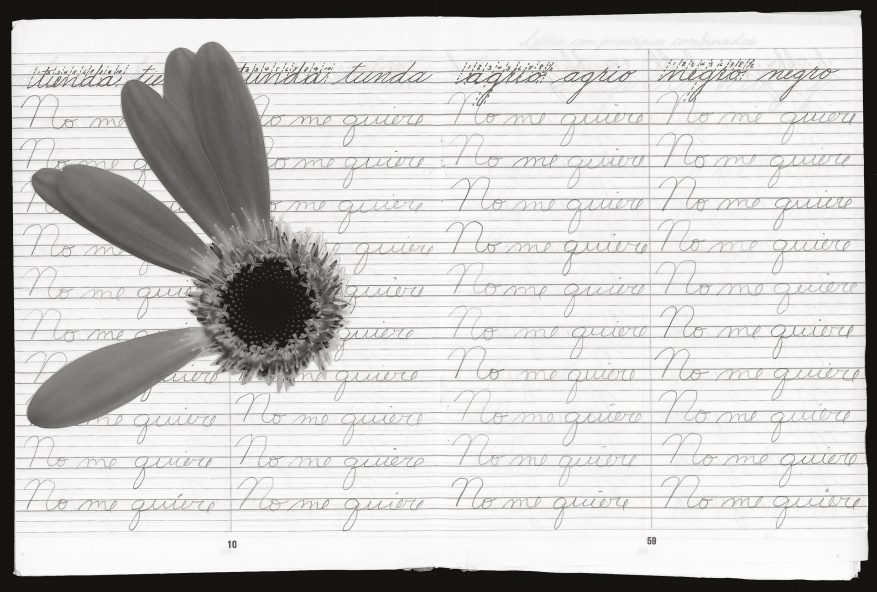 tienda tunda tunda agrio agrio negro negro
No me No me quiere No me quiere No me quiere
No me me quiere No me quiere No me quiere
me quiere No me quiere No me quiere
No me quiere No me quiere No me quiere
No me quiere No me quiere No me quiere
No me quiere No me quiere No me quiere
quiere me quiere No me quiere No me quiere
quiere No me quiere No me quiere No me quiere
No me quiere No me quiere No me quiere No me quiere
No me quiere No me quiere No me quiere No me quiere
10 59